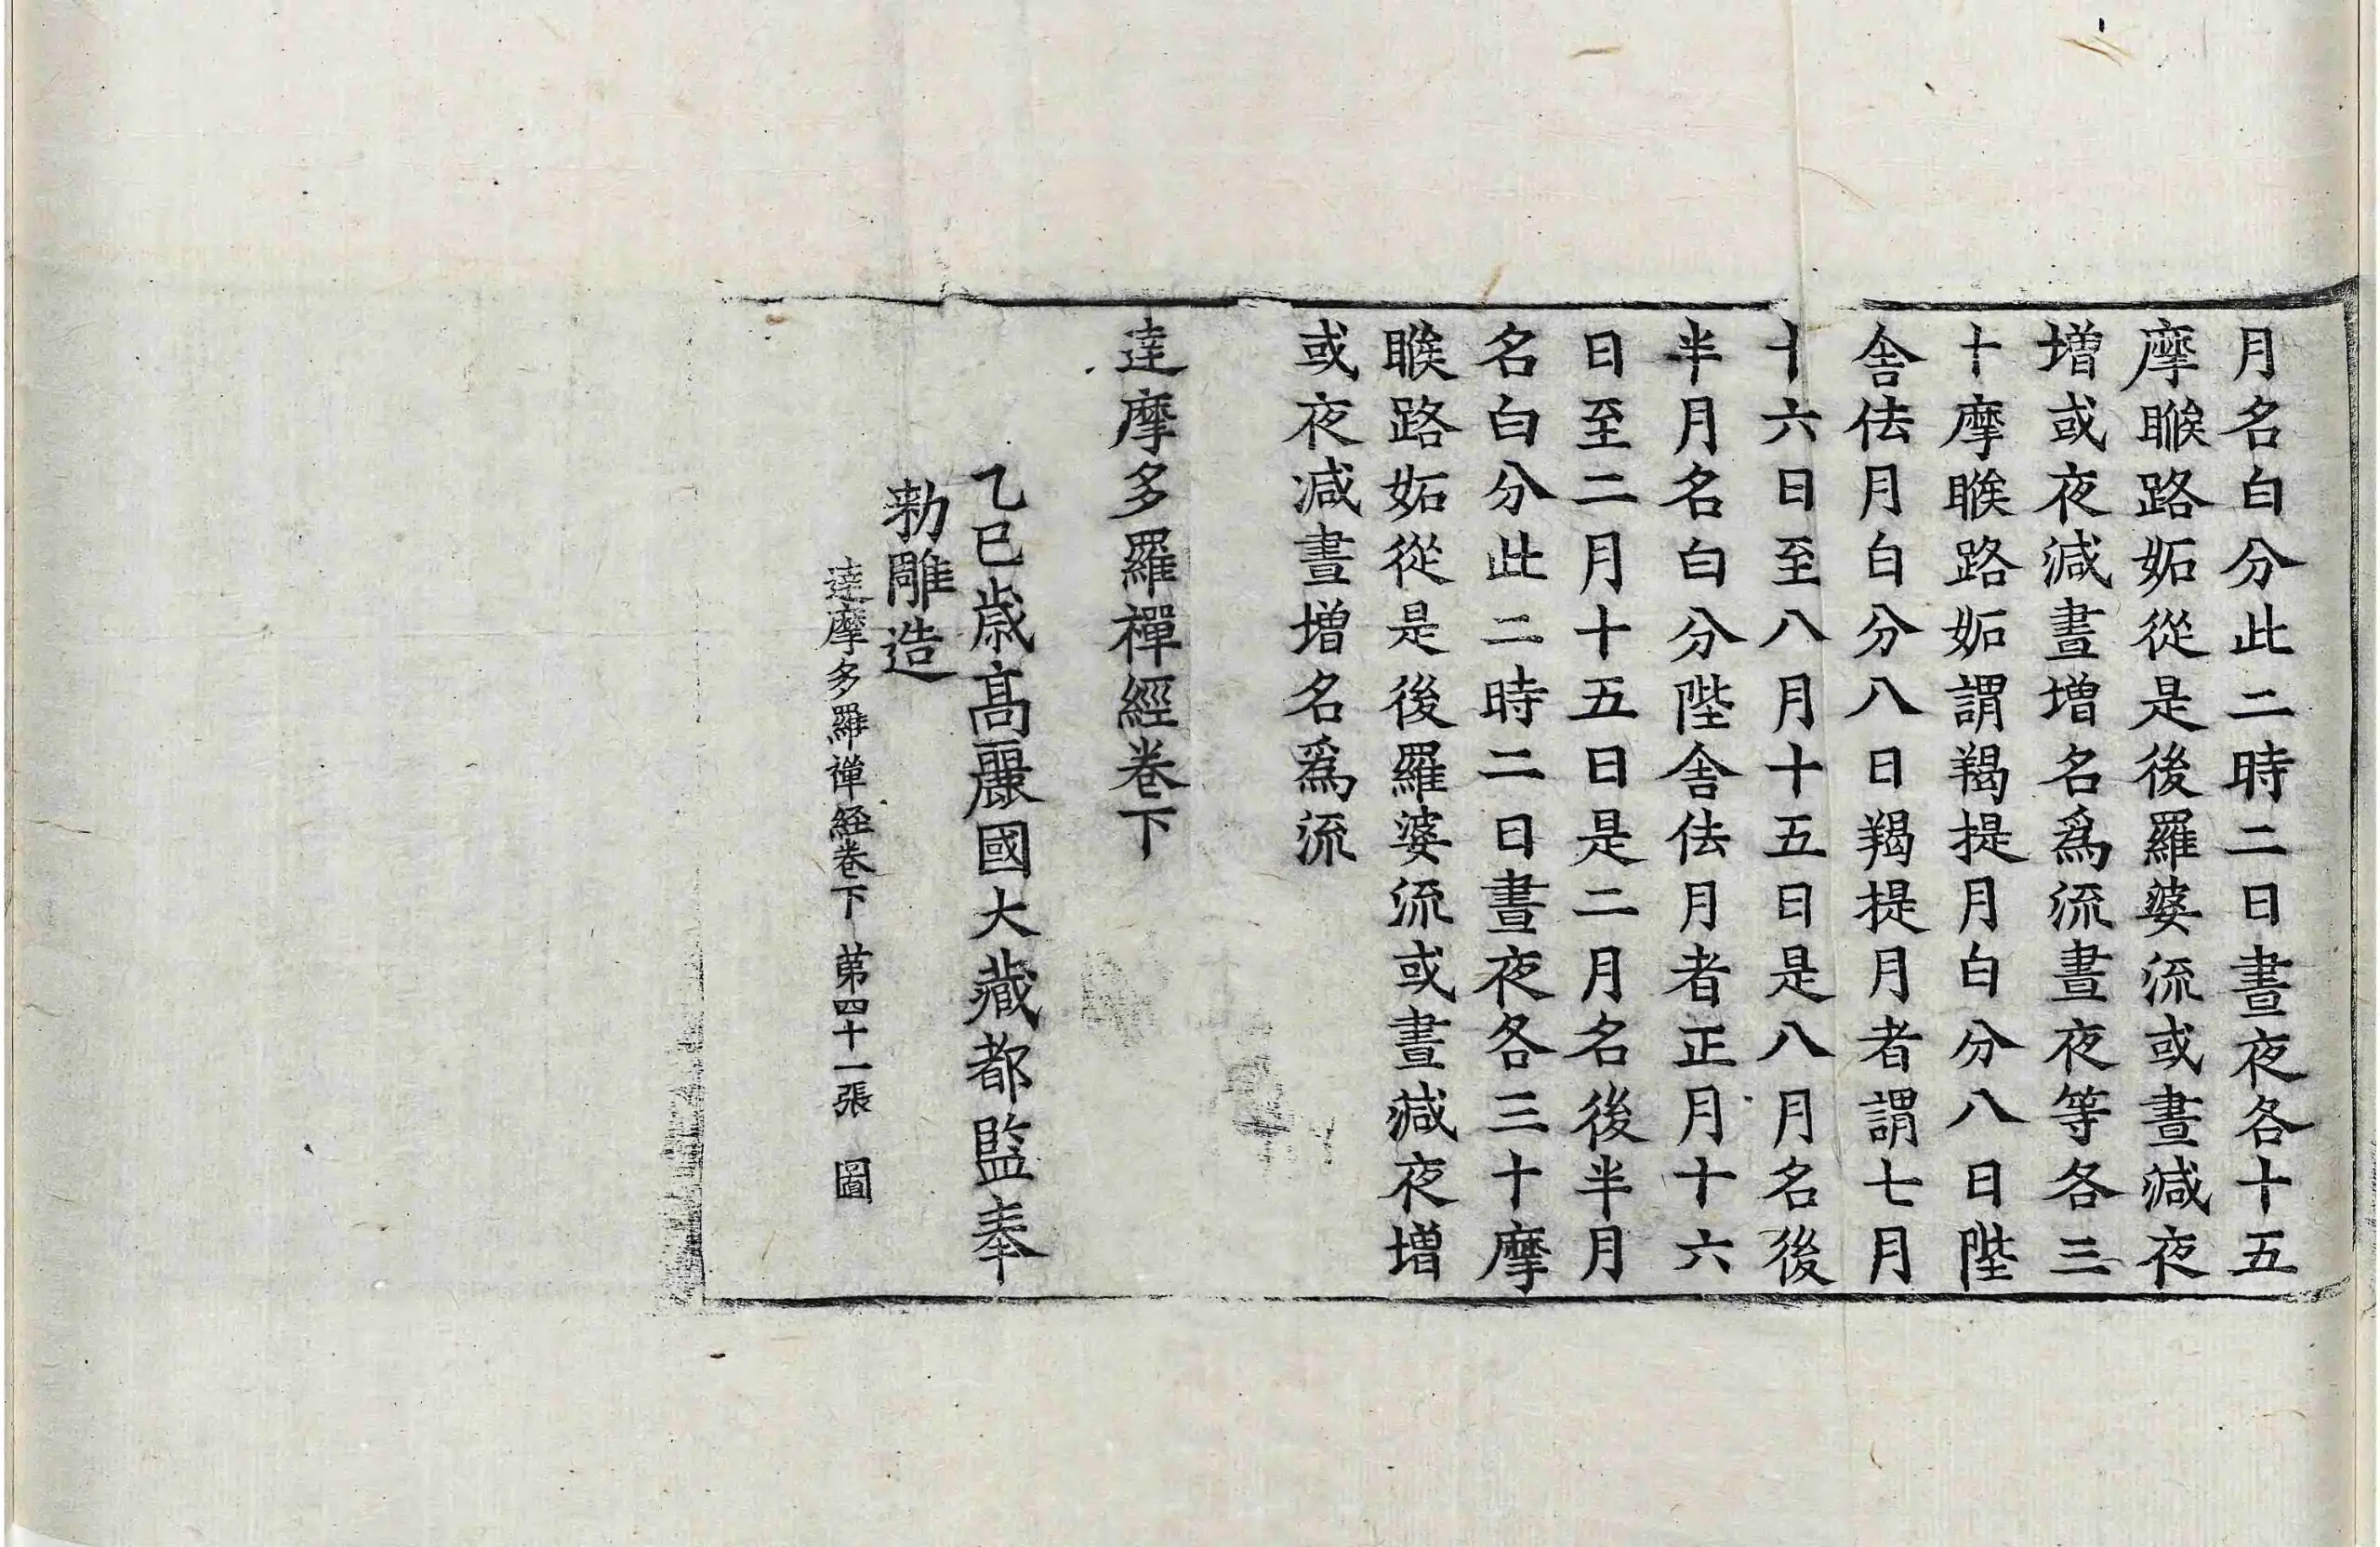 月名白分此二時二日晝夜各十五
摩睺路妬從是後羅婆流或晝減夜
增或夜減晝增名爲流晝夜等各三
十摩睺路妬謂羯提月白分八日陛
舎佉月白分八日羯提月者謂七月
十六日至八月十五日是八月名後
半月名白分陛舎佉月者正月十六
日至二月十五日是二月名後半月
名白分此二時二日晝夜各三十摩
睺路妬從是後羅婆流或晝減夜增
或夜減晝增名爲流
達摩多羅禪經卷下
乙巳歲高麗國大藏都監奉
勅雕造
達摩多羅禅経卷下 苐四十一張 圖